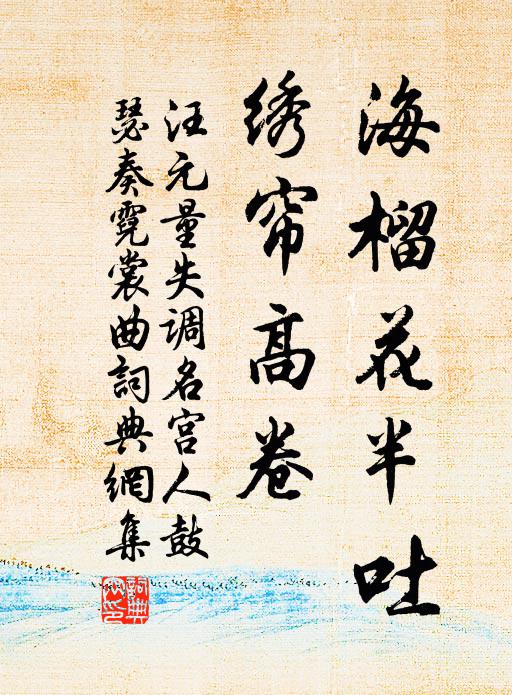 海榴花半吐
绣帘高卷
汪元量失调名宫人鼓
瑟奏霓裳曲詞典網集